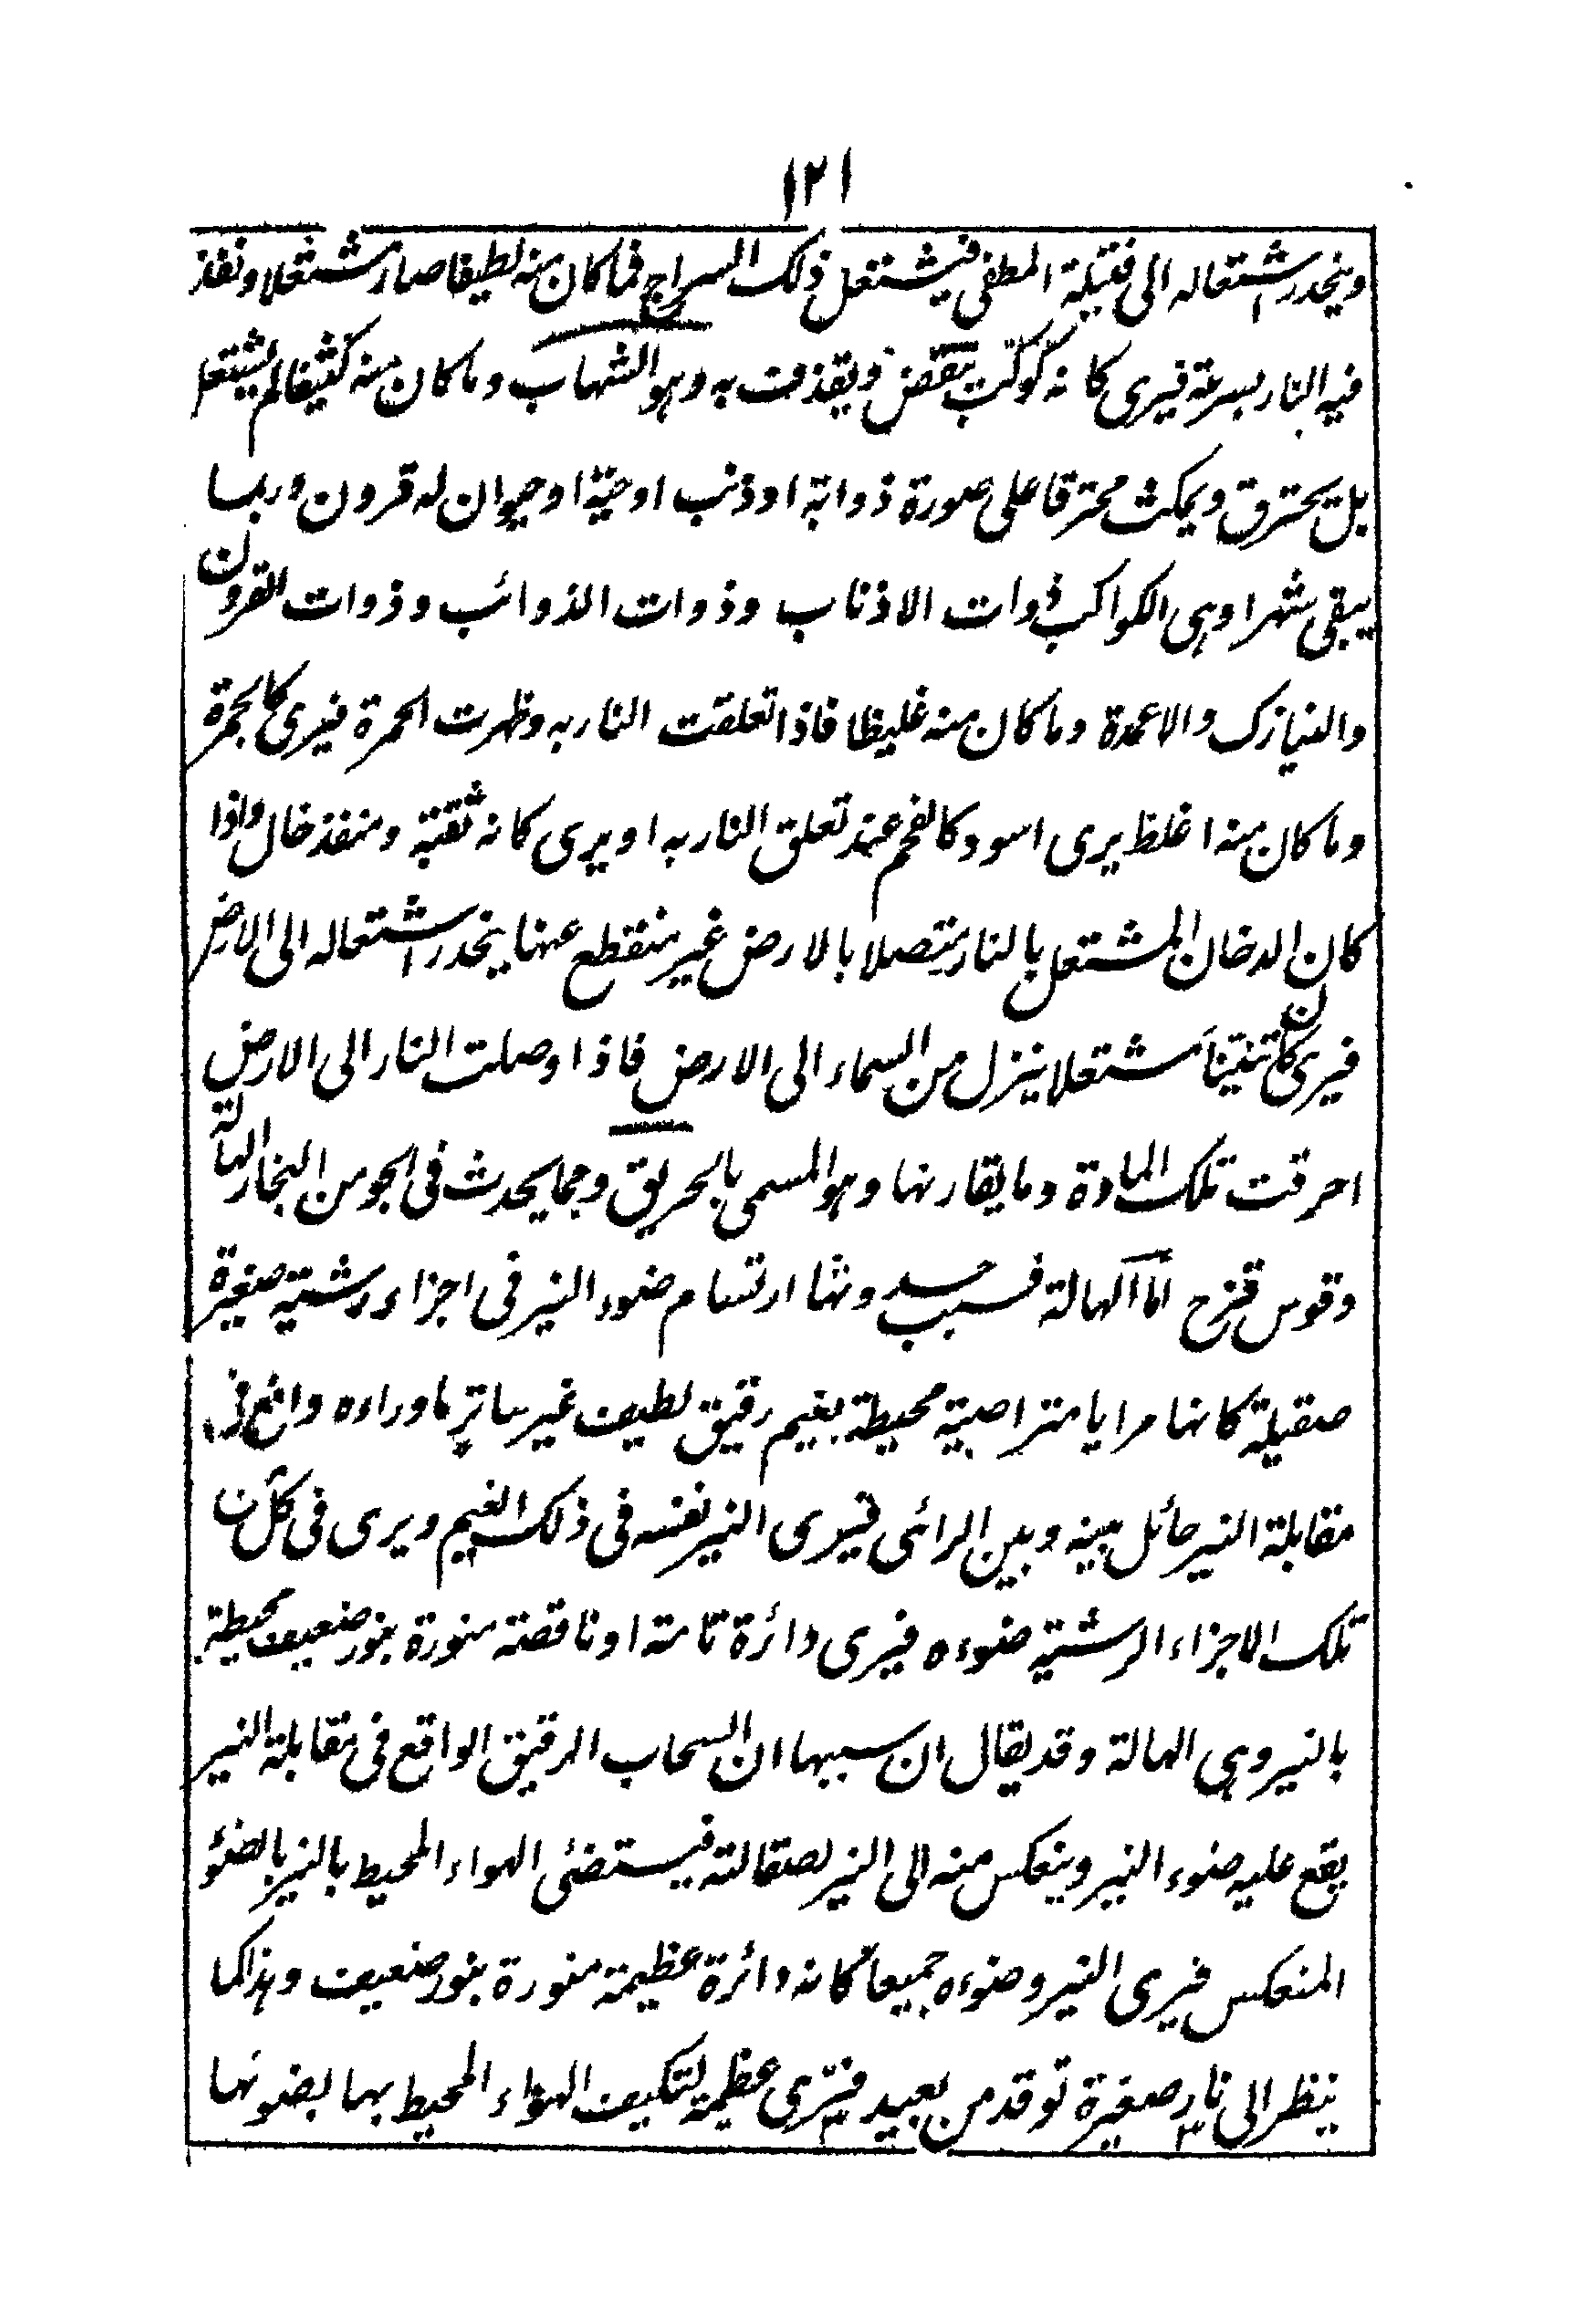 ١٢١
وينحدر اشتعاله الى فتيلة المطفى فيشتعل ذلك السراج فما كان منه لطيفا صار مشتعلا ونفذ
فيه النار بسرعة فيرى كانه كوكب ينقض ويقذف به وهو الشهاب وما كان منه كثيفا لم يشتعل
بل يحترق ويمكث محترقا على صورة ذوابة او ذنب او حية او حيوان له قرون وربما
يبقى شهرا وهى الكواكب ذوات الاذناب وذوات الذوائب وذوات القرون
والنيازك والاعمدة وما كان منه غليظا فاذا تعلقت النار به وظهرت الحمرة فيرى كالجمرة
وما كان منه اغلظ يرى اسود كالفحم عند تعلق النار به او يرى كانه ثقبة ومنفذ خال واذا
كان الدخان المشتعل بالنار متصلا بالارض غير منقطع عنها ينحدر اشتعاله الى الارض
فيرى كان تنينا مشتعلا ينزل من السماء الى الارض فاذا وصلت النار الى الارض
احرقت تلك المادة وما يقارنها وهو المسمى بالحريق ومما يحدث فى الجو من البخار الهالة
وقوس قزح اما الهالة فسبب حدوثها ارتسام ضوء النير فى اجزاء رشية صغيرة
صقيلة كانها مرايا متراصية محيطة بغيم رقيق لطيف غير ساتر ما وراءه واقع فى
مقابلة النير حائل بينه وبين الرائى فيرى النير نفسه فى ذلك الغيم ويرى فى كل من
تلك الاجزاء الرشية ضوءه فيرى دائرة تامة او ناقصة منورة بنور ضعيف محيطة
بالنير وهى الهالة وقد يقال ان سببها ان السحاب الرقيق الواقع فى مقابلة النير
يقع عليه ضوء النير وينعكس منه الى النير لصقالته فيستضئى الهواء المحيط بالنير بالضوء
المنعكس فيرى النير وضوءه جميعا كانه دائرة عظيمة منورة بنور ضعيف وهذا كما
ينظر الى نار صغيرة توقد من بعيد فترى عظيمة لتكيف الهواء المحيط بها بضوئها